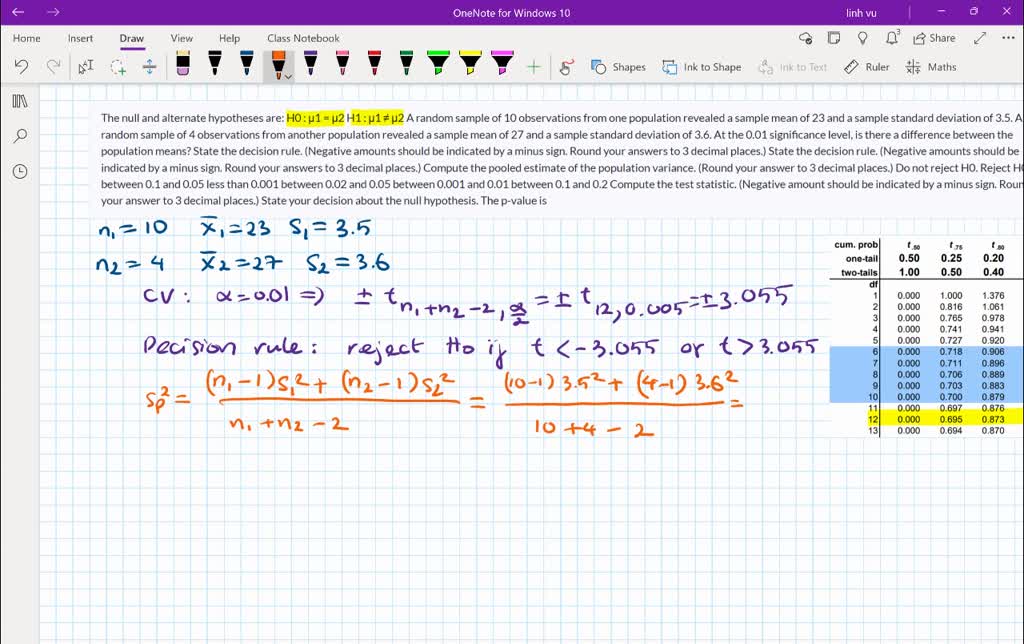 OneNote for Windows 10
linh vu
Home Insert Draw View Help Class Notebook
3 Share
Shapes Ink to Shape Ink to Text Ruler Maths
The null and alternate hypotheses are: H0 : μ1 = μ2 H1 : μ1 ≠ μ2 A random sample of 10 observations from one population revealed a sample mean of 23 and a sample standard deviation of 3.5. A
random sample of 4 observations from another population revealed a sample mean of 27 and a sample standard deviation of 3.6. At the 0.01 significance level, is there a difference between the
population means? State the decision rule. (Negative amounts should be indicated by a minus sign. Round your answers to 3 decimal places.) State the decision rule. (Negative amounts should be
indicated by a minus sign. Round your answers to 3 decimal places.) Compute the pooled estimate of the population variance. (Round your answer to 3 decimal places.) Do not reject H0. Reject H
between 0.1 and 0.05 less than 0.001 between 0.02 and 0.05 between 0.001 and 0.01 between 0.1 and 0.2 Compute the test statistic. (Negative amount should be indicated by a minus sign. Roun
your answer to 3 decimal places.) State your decision about the null hypothesis. The p-value is
n₁ = 10 x̄₁ = 23 S₁ = 3.5
n₂ = 4 x̄₂ = 27 S₂ = 3.6
CV : α = 0.01 => ± t n₁+n₂-2, α/2 = ± t 12, 0.005 = ± 3.055
Decision rule : reject Ho if t < -3.055 or t > 3.055
Sp² = (n₁ - 1) S₁² + (n₂ - 1) S₂² / n₁ + n₂ - 2 = (10-1) 3.5² + (4-1) 3.6² / 10 + 4 - 2 =
cum. prob t .50 t .75 t .80
one-tail 0.50 0.25 0.20
two-tails 1.00 0.50 0.40
df
1 0.000 1.000 1.376
2 0.000 0.816 1.061
3 0.000 0.765 0.978
4 0.000 0.741 0.941
5 0.000 0.727 0.920
6 0.000 0.718 0.906
7 0.000 0.711 0.896
8 0.000 0.706 0.889
9 0.000 0.703 0.883
10 0.000 0.700 0.879
11 0.000 0.697 0.876
12 0.000 0.695 0.873
13 0.000 0.694 0.870